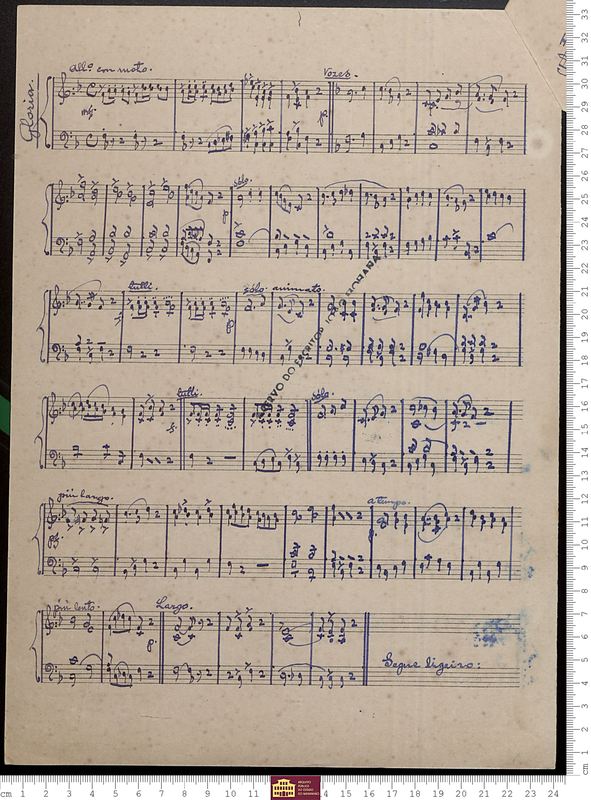 Gloria.
All.º con moto.
Vozes.
Solo.
tutti.
solo animato.
ACERVO DO ESCRITOR
tutti.
solo.
più largo.
a tempo.
più lento.
Largo.
Segue ligeiro:
cm 1 2 3 4 5 6 7 8 9 10 11 12 14 15 16 17 18 19 20 21 22 23 24
cm 1 2 3 4 5 6 7 8 9 10 11 12 13 14 15 16 17 18 19 20 21 22 23 24 25 26 27 28 29 30 31 32 33